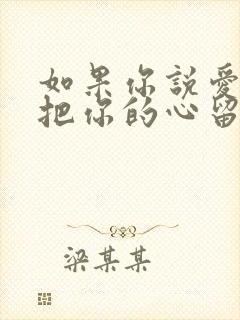 如果你说爱
把你的心留
梁某某